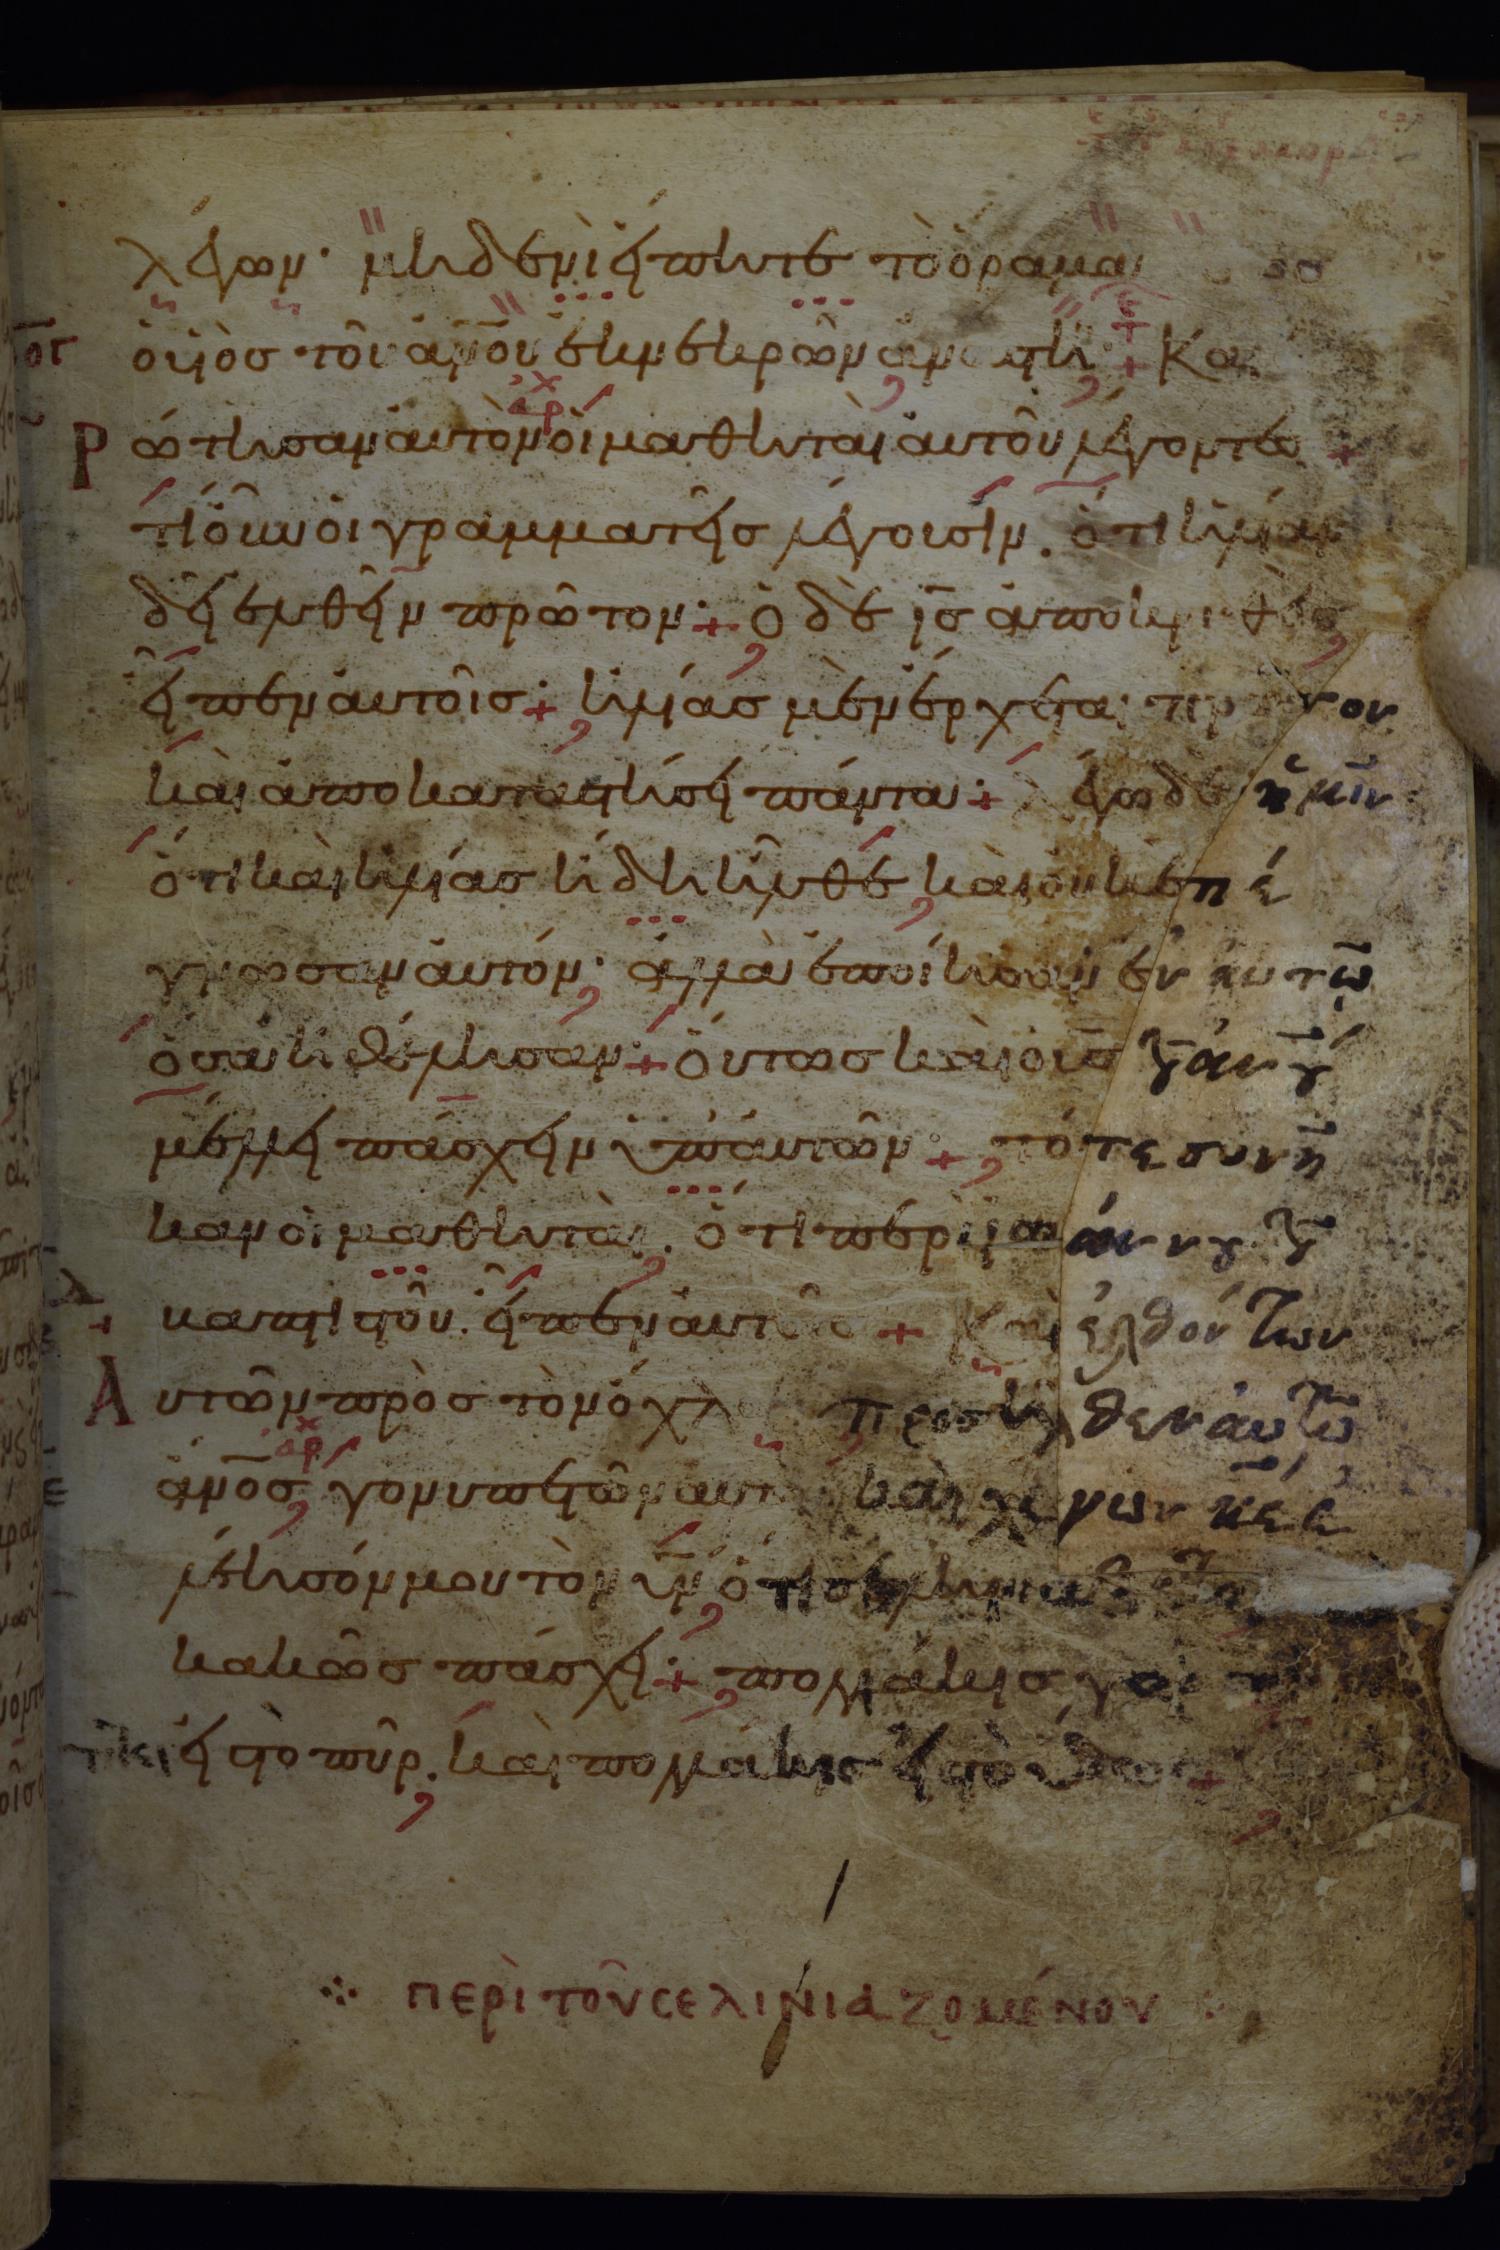 λέγων· μηδενὶ εἴπητε τὸ ὅραμα
ὁ υἱὸς τοῦ ἀν̅ου ἐκ νεκρῶν ἀναστῆ· + Και
Ρ ώτησαν αὐτὸν οἱ μαθηταὶ αὐτοῦ λέγοντες +
τί οὖν οἱ γραμματεῖς λέγουσιν. ὅτι ἠλίαν
δεῖ ἐλθεῖν πρῶτον:+ ὁ δὲ ι̅ς ἀποκριθεὶς
εἶπεν αὐτοῖς:+ ἠλίας μὲν ἔρχεται πρῶτον
καὶ ἀποκαταστήσει πάντα:+ λέγω δὲ ἡμῖν
ὅτι καὶ ἠλίας ἤδη ἦλθε καὶ οὐκ ἐπέ
γνωσαν αὐτόν· ἀλλὰ ἐποίησαν ἐν αυτῶ
ὅσα ἠθέλησαν:+ οὕτως καὶ ὁ υι̅ς τ̅ αν̅ου
μέλλει πάσχειν ὑπ' αὐτῶν:+ τότε συνῆ
καν οἱ μαθηταὶ. ὅτι περὶ ἰωάννου τ̅
βαπτιστοῦ. εἶπεν αὐτοῖς + Καὶ ἐλθόντων
Α υτῶν πρὸς τὸν ὄχλον προσῆλθεν αὐτῶ
ἀν̅ος γονυπετῶν αυτ καὶ λέγων κ̅ε ἐ
λέησόν μου τὸν υἱ̅ν ὅτι σεληνιαζεται
κακῶς πάσχει:+ πολλάκις γὰρ
εἰς τὸ πῦρ. καὶ πολλάκις εἰς τὸ ὕδωρ +
ΠΕΡὶ ΤΟῦ CΕΛΙΝΙΑΖΟΜέΝΟΥ